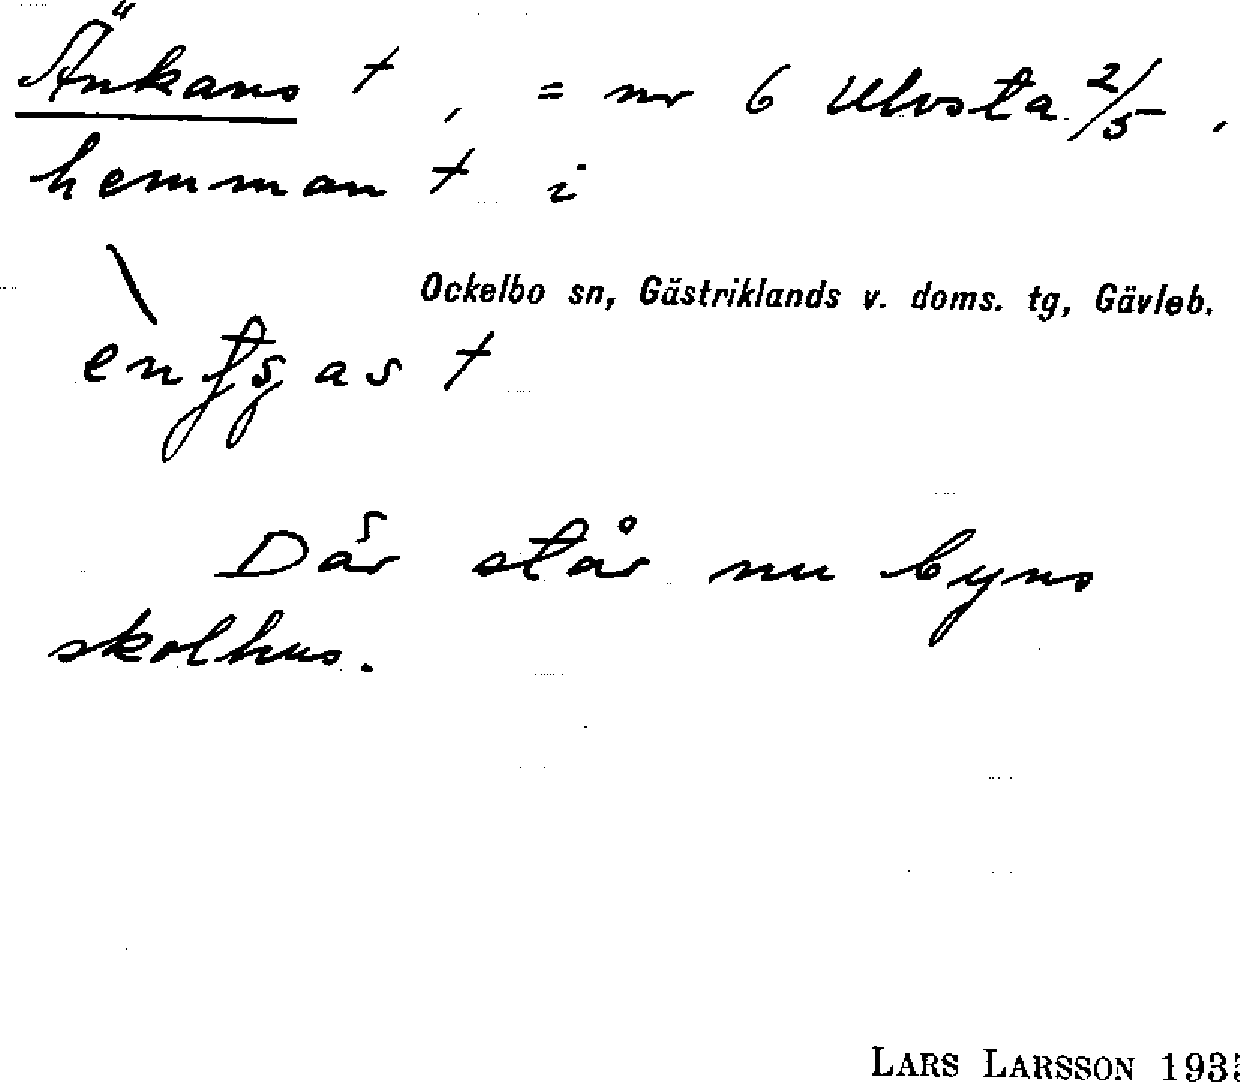 Änkans †, = nr 6 Ulvsta 2/5,
hemman † i
Ockelbo sn, Gästriklands v. doms. tg, Gävleb.
Där står nu byns
skolhus.
LARS LARSSON 193